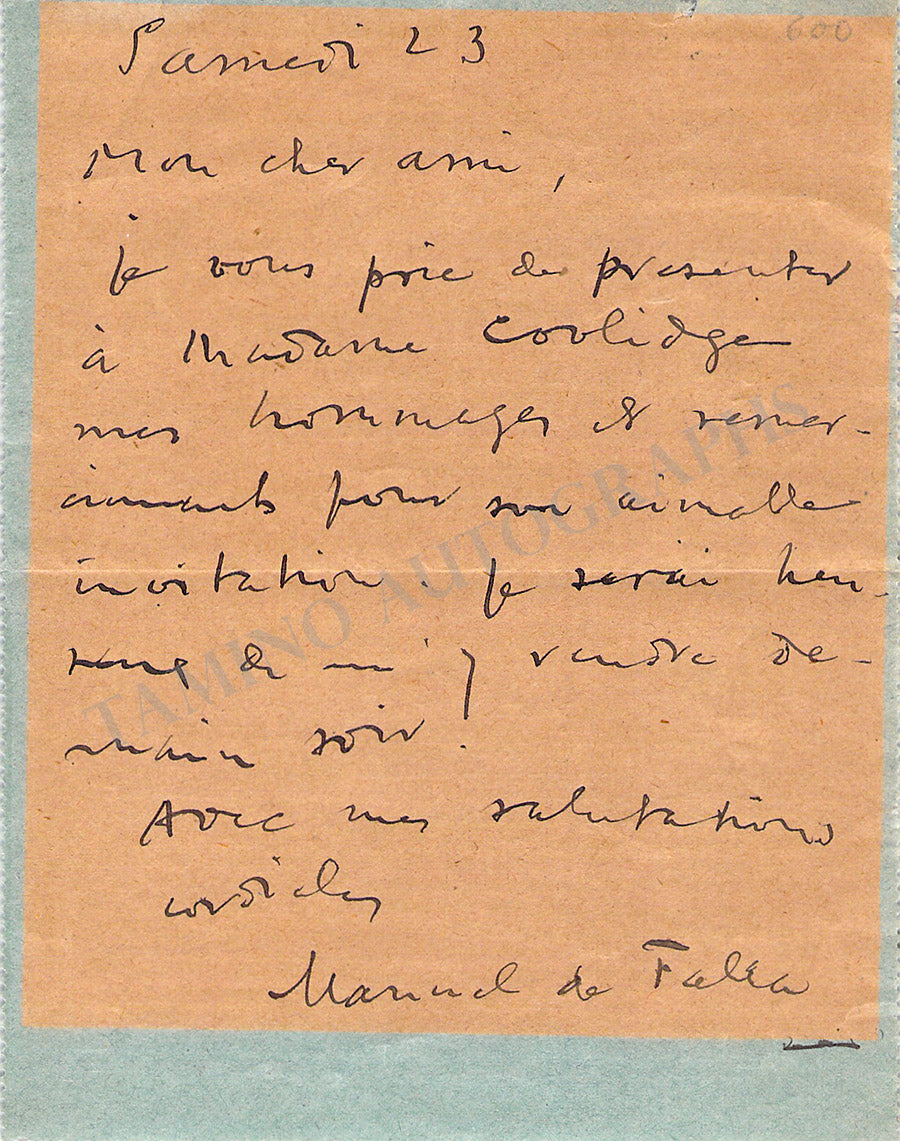 600
Samedi 23
Mon cher ami,
je vous prie de presenter
à Madame Coolidge
mes hommages et remer-
ciements pour son aimable
invitation. Je serai heu-
reux de m'y rendre de-
main soir.
Avec mes salutations
cordiales
Manuel de Falla
TAMINO AUTOGRAPHS